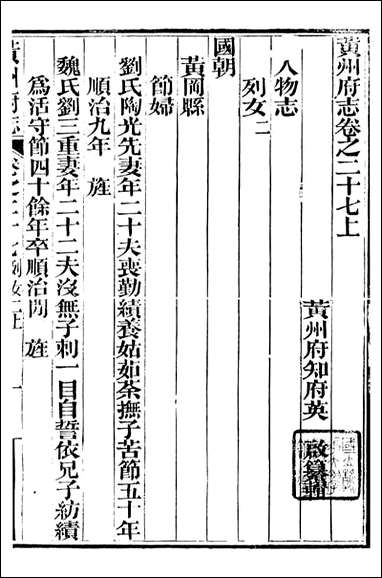 黃州府志卷之二十七上
黃州府知府英啟纂輯
人物志
列女二
國朝
黃岡縣
節婦
劉氏陶光先妻年二十夫喪勤績養姑茹荼撫子苦節五十年
順治九年 旌
魏氏劉三重妻年二十二夫沒無子刺一目自誓依兄子紡績
爲活守節四十餘年卒順治間 旌
黃州府志 卷之二十七 列女二上 一